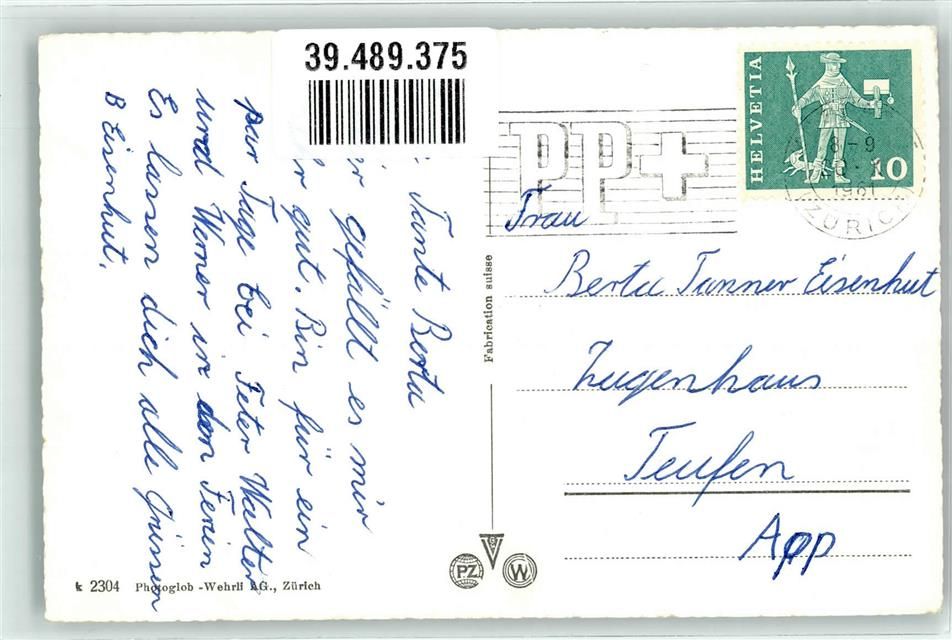 39.489.375
Tante Berta
gefällt es mir
gut. Bin für ein
paar Tage bei Feter Walter
und Werner in den Ferien
Es lassen dich alle Grüssen
B Eisenhut.
PP+
HELVETIA
10
8-9
1961
ZÜRICH
Frau
Berta Tanner Eisenhut
Zugenhaus
Teufen
App
Fabrication suisse
PZ
W
k 2304 Photoglob-Wehrli AG., Zürich